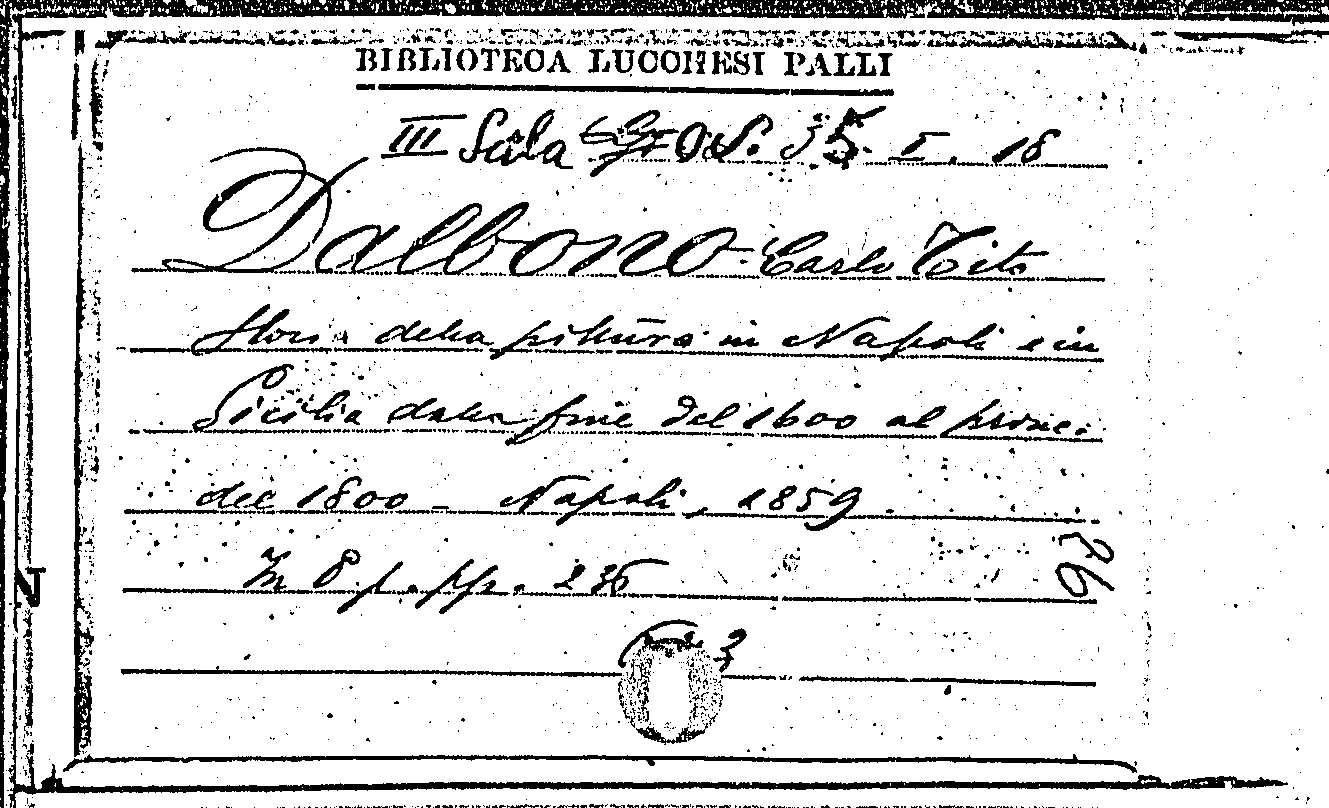 BIBLIOTECA LUCCHESI PALLI
III Sala I. 18
Dalbono Carlo Tito
Storia della pittura in Napoli e in
Sicilia dalla fine del 1600 al princ.
del 1800 - Napoli, 1859.
In 8. p. pp. 236
26
N